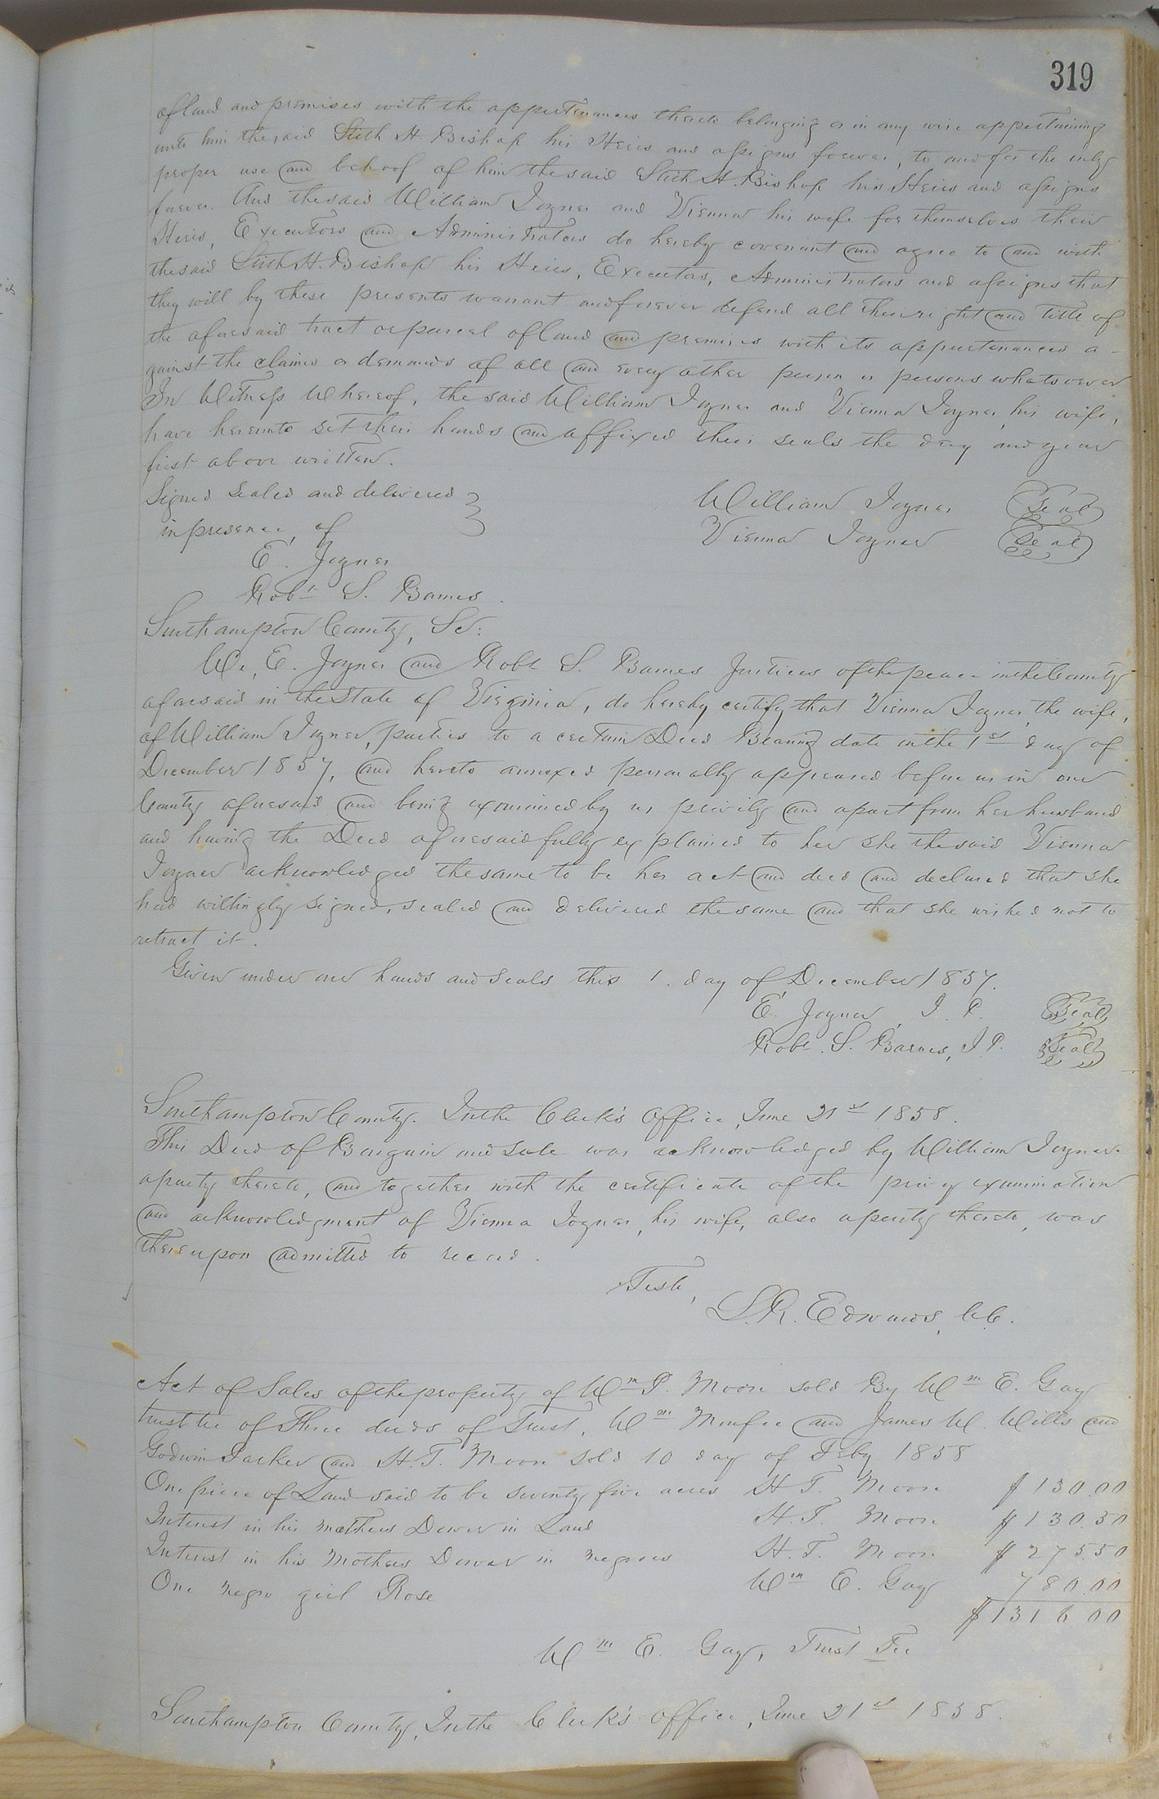 319
of land and premises with the appurtenances thereto belonging or in any wise appertaining
unto him the said Stith H. Bishop his Heirs and assigns forever, to and for the only
proper use and behoof of him the said Stith H. Bishop his Heirs and assigns
forever. And the said William Joyner and Vienna his wife for themselves their
Heirs, Executors and Administrators do hereby covenant and agree to and with
the said Stith H. Bishop his Heirs, Executors, Administrators and assigns that
they will by these presents warrant and forever defend all their right and title of
the aforesaid tract or parcel of land and premises with its appurtenances a-
gainst the claims or demands of all and every other person or persons whatsoever
In Witness Whereof, the said William Joyner and Vienna Joyner, his wife,
have hereunto set their hands and affixed their seals the day and year
first above written.
Signed sealed and delivered } William Joyner Seal
in presence of Vienna Joyner Seal
E. Joyner
Robt. S. Barnes.
Southampton County, Sc:
We, E. Joyner and Robt S. Barnes Justices of the peace in the County
aforesaid in the State of Virginia, do hereby certify that Vienna Joyner, the wife,
of William Joyner, parties to a certain Deed Bearing date on the 1st day of
December 1857, and hereto annexed personally appeared before us in our
County aforesaid and being examined by us privily and apart from her husband
and having the Deed aforesaid fully explained to her she the said Vienna
Joyner acknowledged the same to be her act and deed and declared that she
had willingly signed, sealed and delivered the same and that she wished not to
retract it.
Given under our hands and seals this 1. day of December 1857.
E. Joyner, J. P. Seal
Robt. S. Barnes, J P. Seal
Southampton County. In the Clerk's Office, June 21st 1858.
This Deed of Bargain and Sale was acknowledged by William Joyner
a party thereto, and together with the certificate of the privy examination
and acknowledgment of Vienna Joyner, his wife, also a party thereto, was
thereupon admitted to record.
Teste,
L. R. Edwards, C.C.
Act of Sales of the property of Wm P. Moore sold By Wm E. Gay
trustee of Three deeds of Trust, Wm and James W. Wills and
Godwin Parker and H. T. Moore sold 10 day of Feby 1858
One piece of Land said to be seventy five acres H T. Moore $130.00
Interest in his mothers Dower in Land H. T. Moore $130.50
Interest in his Mothers Dower in negroes H. T. Moore $275.50
One negro girl Rose Wm E. Gay 780.00
$1316 00
Wm E. Gay, Trust Tee
Southampton County, In the Clerk's Office, June 21st 1858.